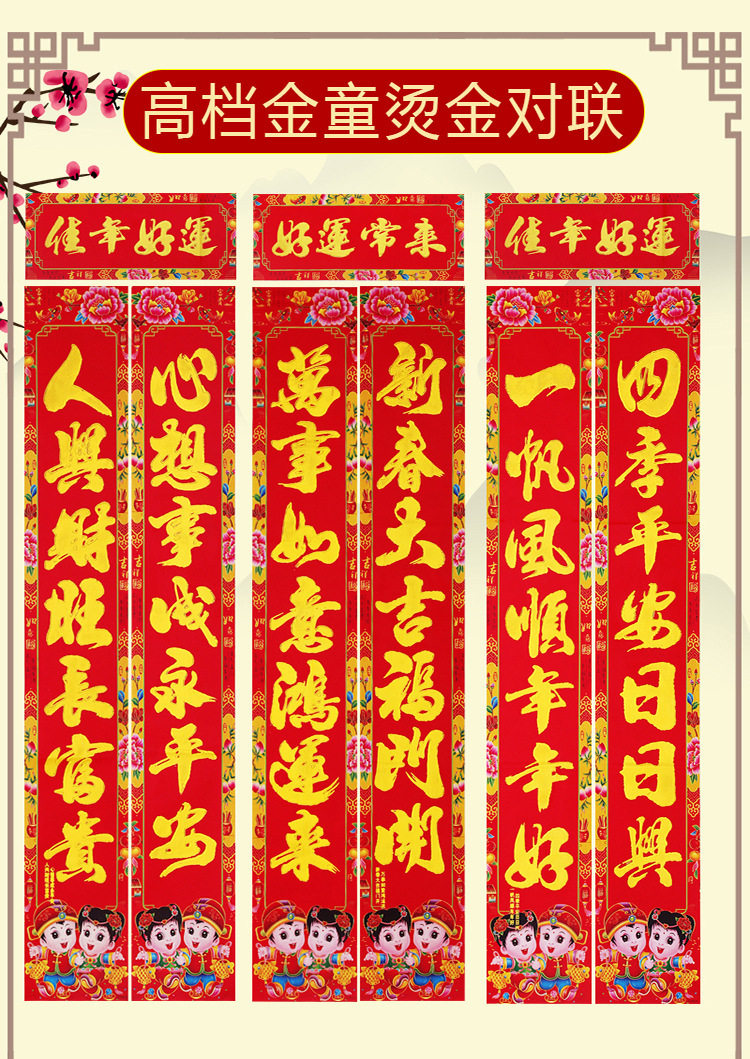 高档金童烫金对联
佳年好運
心想事成永平安
人興財旺長富貴
好運常来
新春大吉福門開
萬事如意鴻運来
佳年好運
四季平安日日興
一帆風順年年好